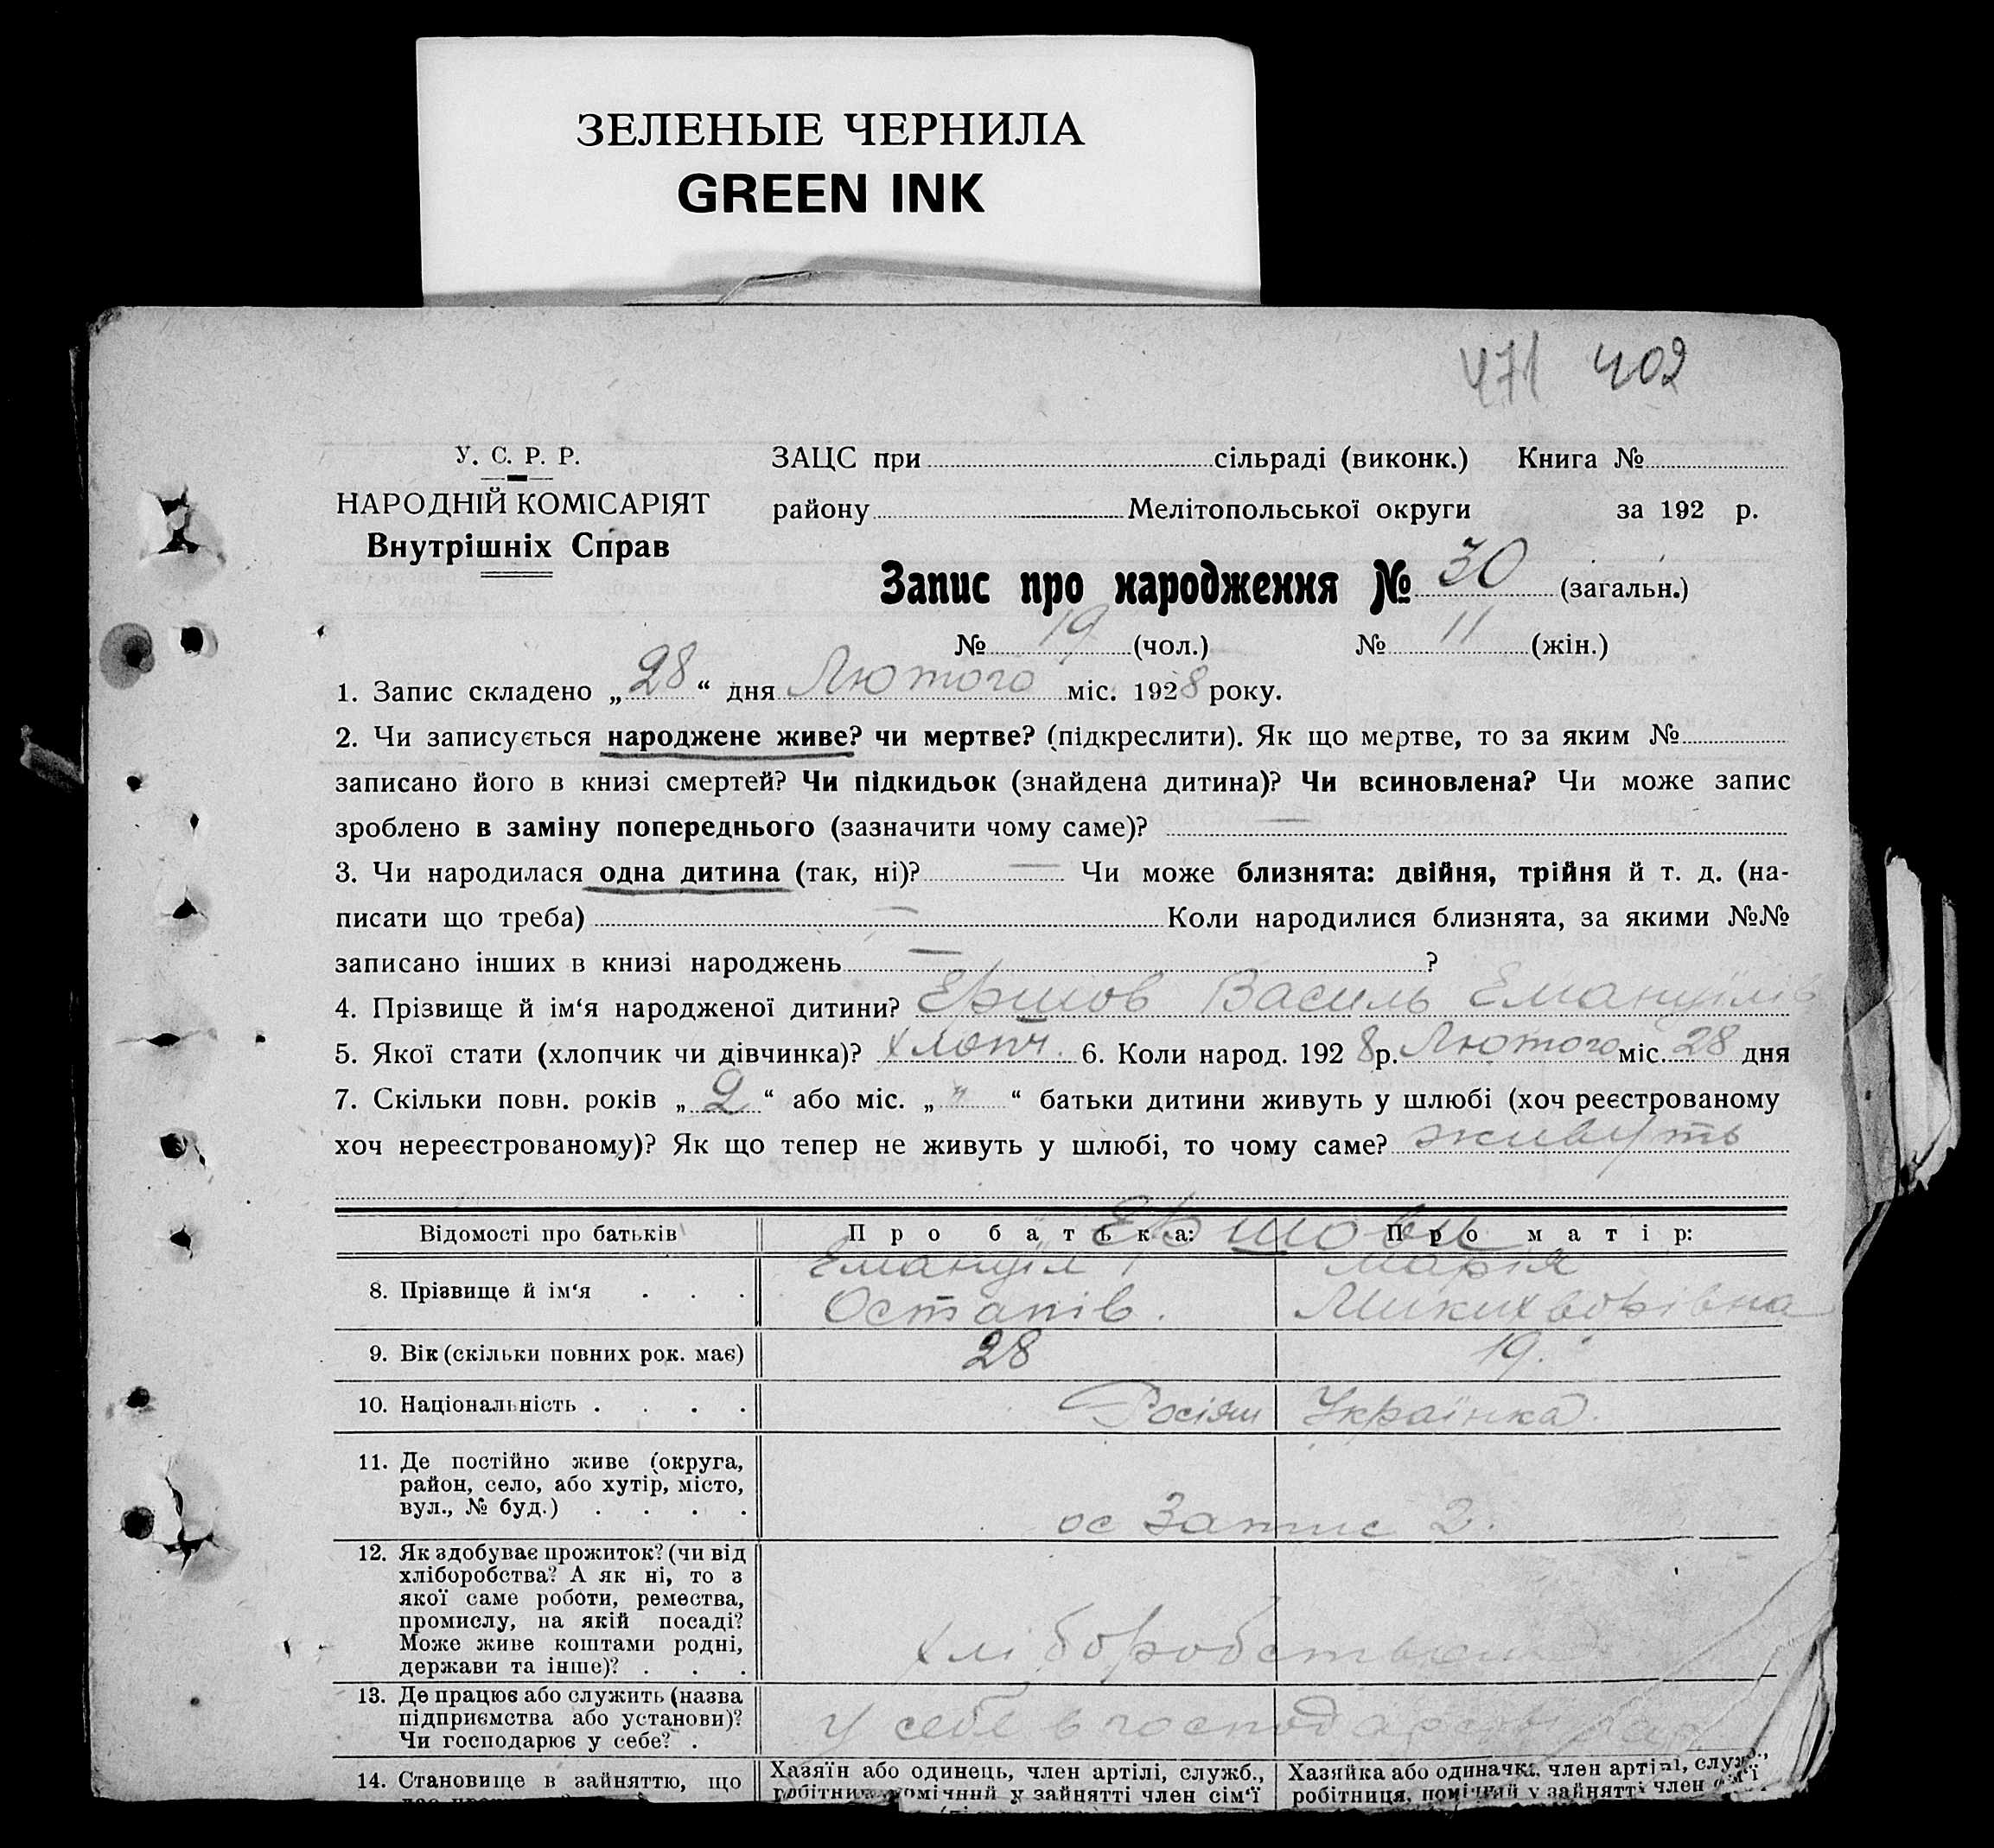 ЗЕЛЕНЫЕ ЧЕРНИЛА
GREEN INK
471 402
У. С. Р. Р.
НАРОДНІЙ КОМІСАРІЯТ
Внутрішніх Справ
ЗАЦС при сільраді (виконк.) Книга №
району Мелітопольської округи за 192 р.
Запис про народження № 30 (загальн.)
№ 19 (чол.) № 11 (жін.)
1. Запис складено „28“ дня Лютого міс. 1928 року.
2. Чи записується народжене живе? чи мертве? (підкреслити). Як що мертве, то за яким №
записано його в книзі смертей? Чи підкидьок (знайдена дитина)? Чи всиновлена? Чи може запис
зроблено в заміну попереднього (зазначити чому саме)? —
3. Чи народилася одна дитина (так, ні)? — Чи може близнята: двійня, трійня й т. д. (на-
писати що треба) — Коли народилися близнята, за якими №№
записано інших в книзі народжень — ?
4. Прізвище й ім‘я народженої дитини? Ершов Василь Емануілів
5. Якої стати (хлопчик чи дівчинка)? хлопч. 6. Коли народ. 1928 р. Лютого міс. 28 дня
7. Скільки повн. років „2“ або міс. „ " “ батьки дитини живуть у шлюбі (хоч реєстрованому
хоч нереєстрованому)? Як що тепер не живуть у шлюбі, то чому саме? живуть
Відомості про батьків Про батька: Про матір:
Ершови
8. Прізвище й ім‘я . . . Емануіл Марія
Остапів. Микихворівна
9. Вік (скільки повних рок. має) 28 19.
10. Національність . . . . Росіян Українка.
11. Де постійно живе (округа,
район, село, або хутір, місто,
вул., № буд.) . . . . Запис 2.
12. Як здобуває прожиток? (чи від
хліборобства? А як ні, то з
якої саме роботи, ремества,
промислу, на якій посаді?
Може живе коштами родні,
держави та інше)? . . .
13. Де працює або служить (назва
підприємства або установи)?
Чи господарює у себе? . у себе в
14. Становище в зайняттю, що
Хазяїн або одинець, член артілі, служб., Хазяйка або одиначка, член артілі, служб.,
робітник, помічний у зайнятті член сім‘ї робітниця, помічний у зайнятті член сім‘ї